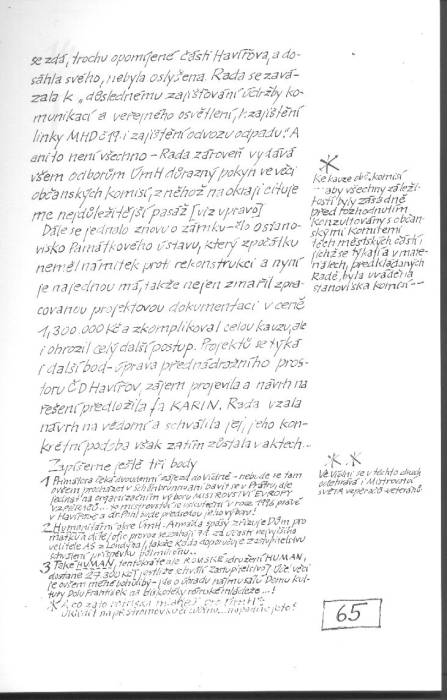 se zdá, trochu opomíjené části Havířova, a do-
sáhla svého, nebyla oslyšena. Rada se zavá-
zala k „důslednému zajišťování údržby ko-
munikací a veřejného osvětlení, k zajištění
linky MHD č. 19 i zajištění odvozu odpadu". A
ani to není všechno – Rada zároveň vydává
všem odborům ÚmH důrazný pokyn ve věci
občanských komisí, z něhož na okraji cituje
me nejdůležitější pasáž [viz vpravo]
Dále se jednalo znovu o zámku – šlo o stano-
visko Památkového ústavu, který zpočátku
neměl námitek proti rekonstrukci a nyní
je najednou má, takže nejen zmařil zpra-
covanou projektovou dokumentaci v ceně
1,300.000 Kč a zkomplikoval celou kauzu, ale
i ohrozil celý další postup. Projektů se týká
i další bod – úprava přednádražního pros-
toru ČD Havířov, zájem projevila a návrh na
řešení předložila fa KARIN. Rada vzala
návrh na vědomí a schválila jej, jeho kon-
krétní podoba však zatím zůstala v aktech...
Zapíšeme ještě tři body
1 Primátora čeká dvoudenní zájezd do Vídně – nebude se tam
ovšem procházet v Schönbrunnu ani bavit se v Prátru, ale
jednat na organizačním výboru MISTROVSTVÍ EVROPY
VZPĚRAČŮ... to mistrovství se uskuteční v roce 1996 právě
v Havířově a dr. Pinl bude předsedou jeho výboru!
2 Humanitární okre ÚmH: Armáda spásy zřizuje Dům pro
matku a dítě,
velitele AS z Londýna!, takže Rada doporučuje zastupitelstvu
schválení příspěvku půlmilionu...
3 Také HUMAN, tentokráte ale ROMSKÉ sdružení HUMAN,
dostane 27.300 Kč [jestli to schválí zastupitelstvo] Účel věci
je ovšem méně bohulibý – jde o úhradu nájmu sálu Domu kul-
tury Dolu František na diskotéky romské mládeže...!
※ A co zato
✲
Ke kauze obč. komisí
...aby všechny zálež-
tosti byly zásadně
před rozhodnutím
konzultovány s občan-
skými komitémi
těch městských částí,
jichž se týkají a v mate-
riálech, předkládaných
Radě, byla uváděna
stanoviska komisí --
✲.✲
Ve Vídni se v těchto dnech
odehrává i Mistrovství
světa vzpěračů veteránů.
65